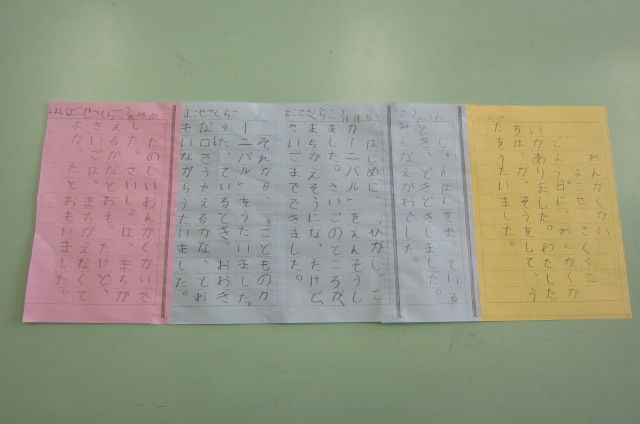 おんがくかい
よこせ さくらこ
どよう日に、おんがくか
いがありました。わたした
ちは、がっそうをして、う
たをうたいました。
じゅんばんをまっている
とき、どきどきしました。
みんなえがおでした。
よこせさくらこ
はじめに、「ひがし。こ
カーニバル」をえんそうし
ました。さいごのところが、
まちがえそうになったけど、
さいごまでできました。
よこせさくらこ
それから、「こどものカ
ーニバル」をうたいました。
うたっているとき、おおき
な口でうたえるかな、とお
もいながらうたいました。
よこせさくらこ
たのしいおんがくかいで
した。さいしょは、まちが
えるかなとおもったけど、
さいごは、まちがえなくて
よかったとおもいました。